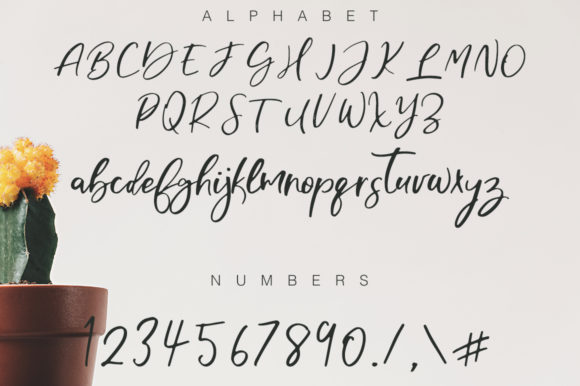 ALPHABET
ABCDEFGHIJKLMNO
PQRSTUVWXYZ
abcdefghijklmnopqrstuvwxyz
NUMBERS
1234567890./,\#